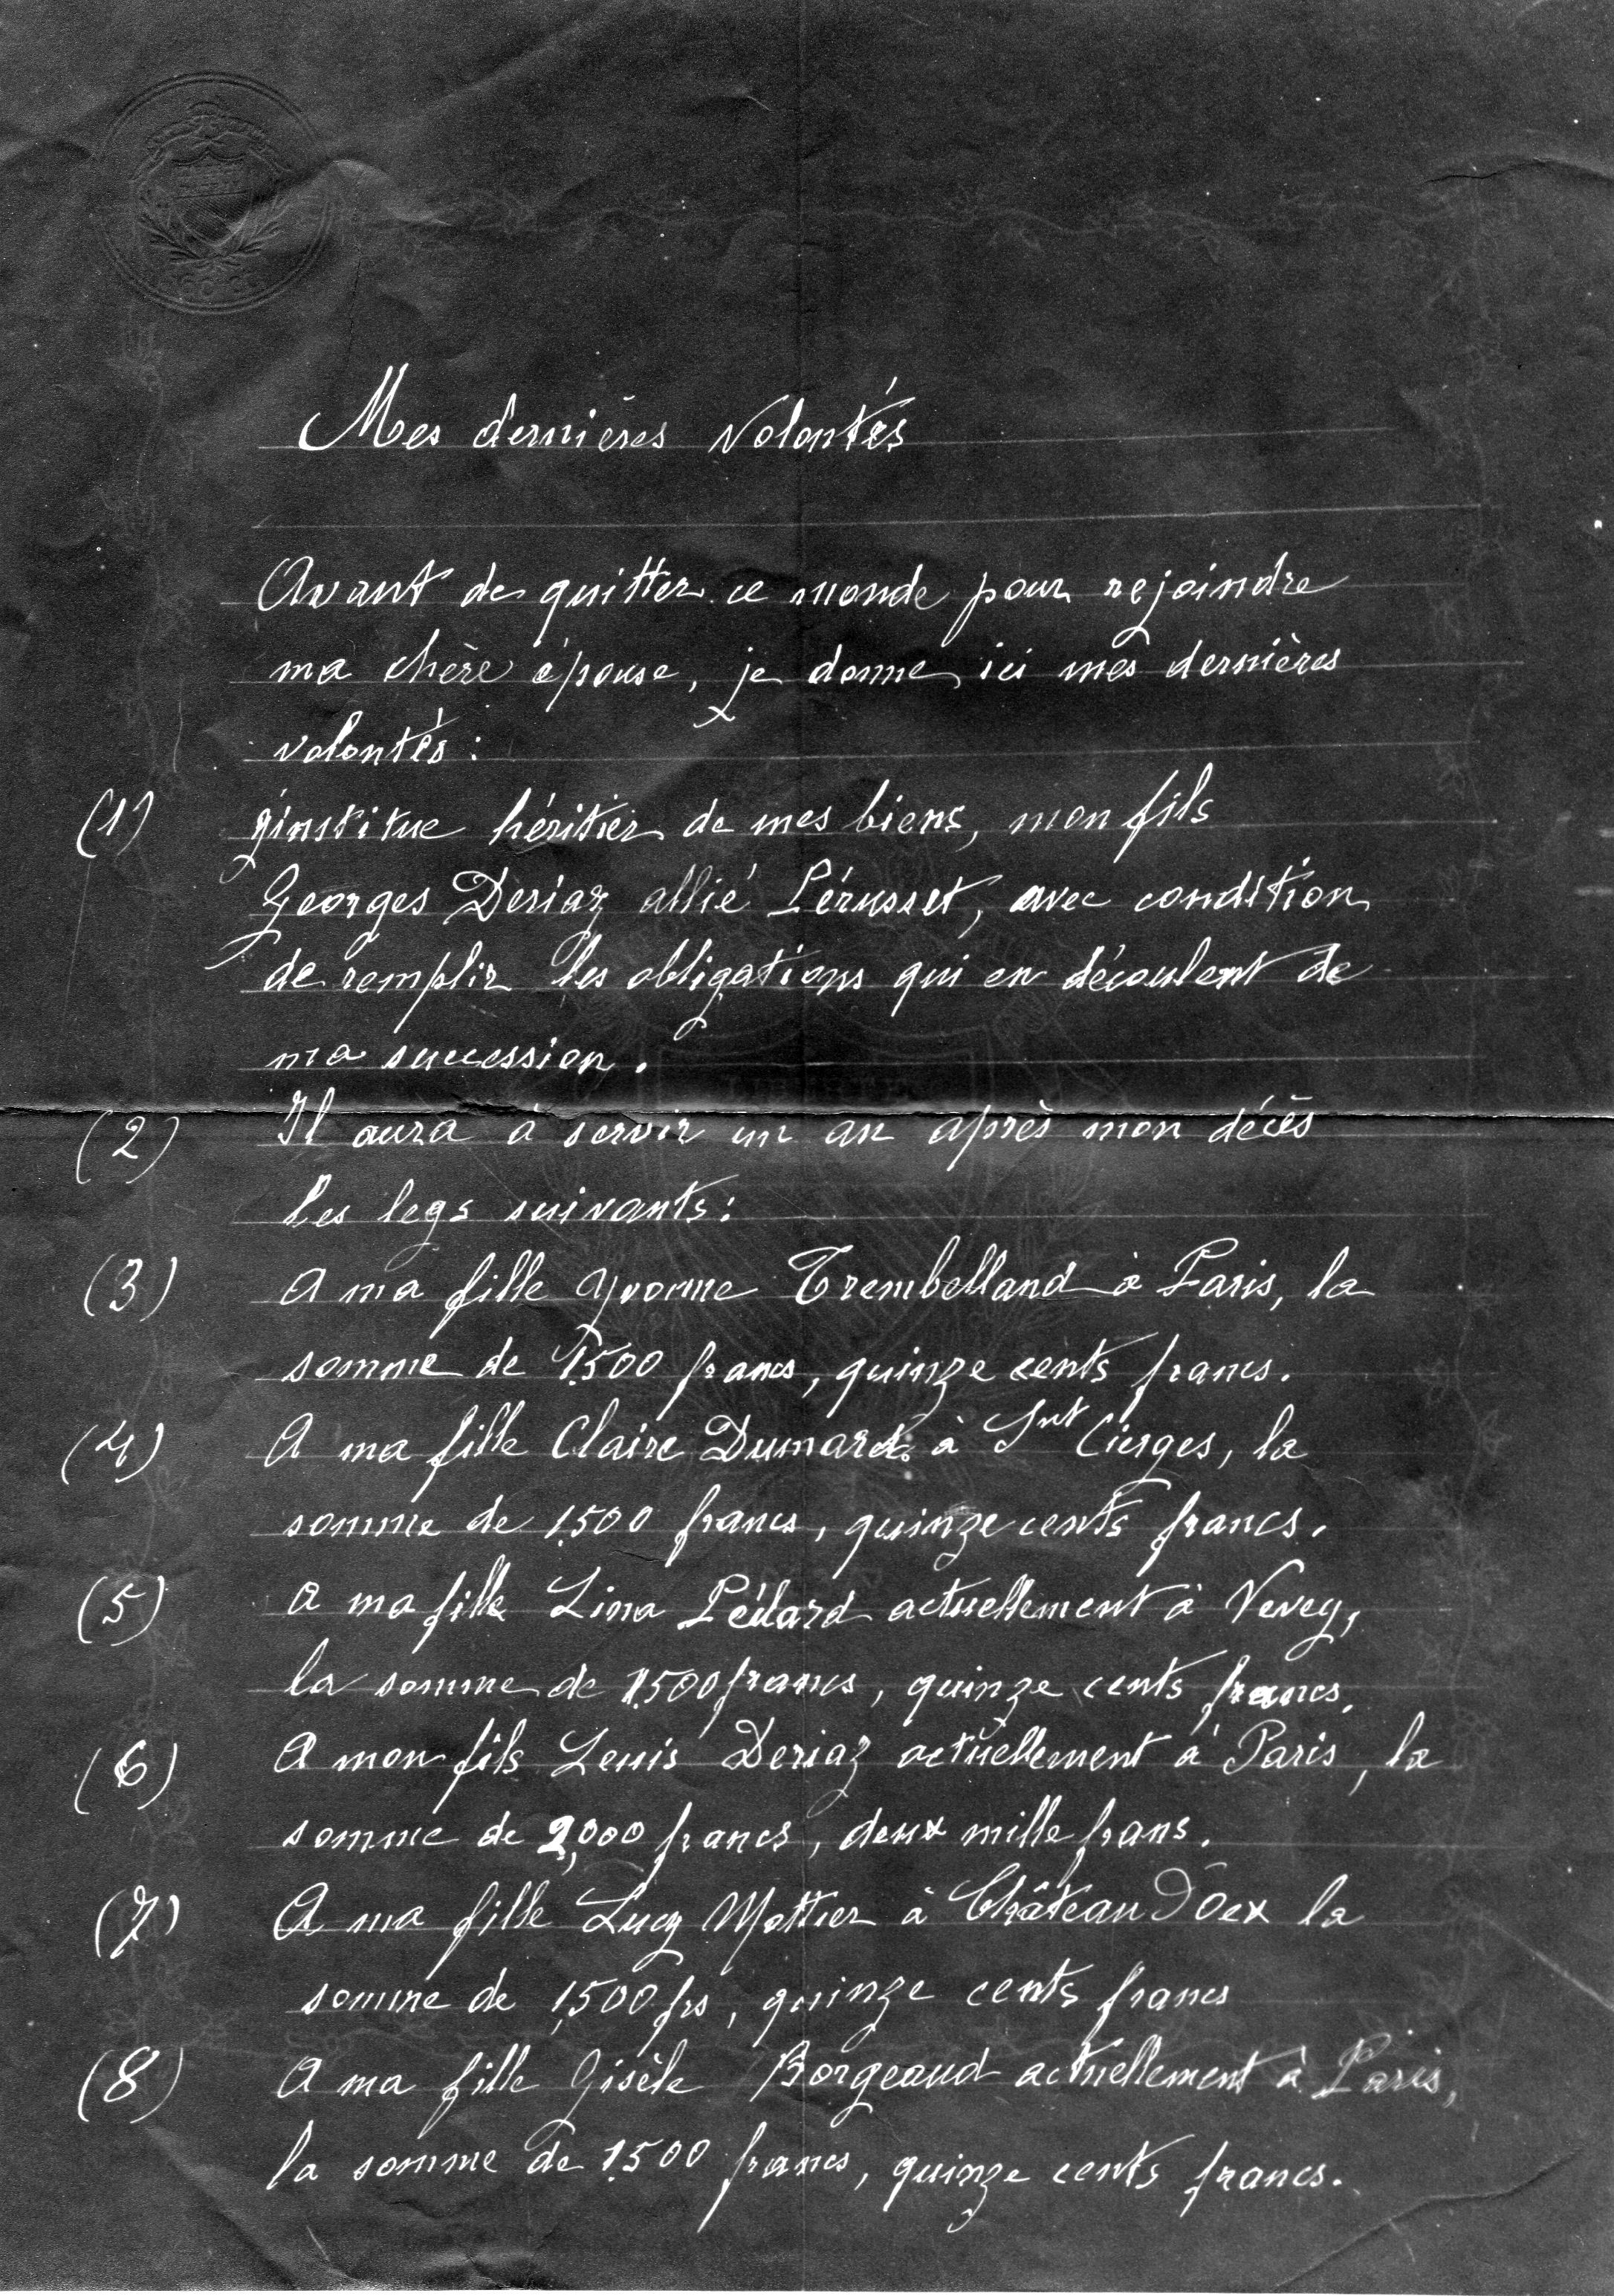 Mes dernières volontés
Avant de quitter ce monde pour rejoindre
ma chère épouse, je donne ici mes dernières
volontés :
(1) j'institue héritier de mes biens, mon fils
Georges Deriaz allié Pérusset, avec condition
de remplir les obligations qui en découlent de
ma succession.
(2) Il aura à servir un an après mon décès
les legs suivants :
(3) A ma fille Yvonne Trembelland à Paris, la
somme de 1500 francs, quinze cents francs.
(4) A ma fille Claire Dumard à Snt Cierges, la
somme de 1500 francs, quinze cents francs.
(5) A ma fille Lina Pélard actuellement à Vevey,
la somme de 1500 francs, quinze cents francs.
(6) A mon fils Louis Deriaz actuellement à Paris, la
somme de 2,000 francs, deux mille frans.
(7) A ma fille Lucy Mottier à Château D'Oex la
somme de 1,500 frs, quinze cents francs
(8) A ma fille Gisèle Borgeaud actuellement à Paris,
la somme de 1500 francs, quinze cents francs.